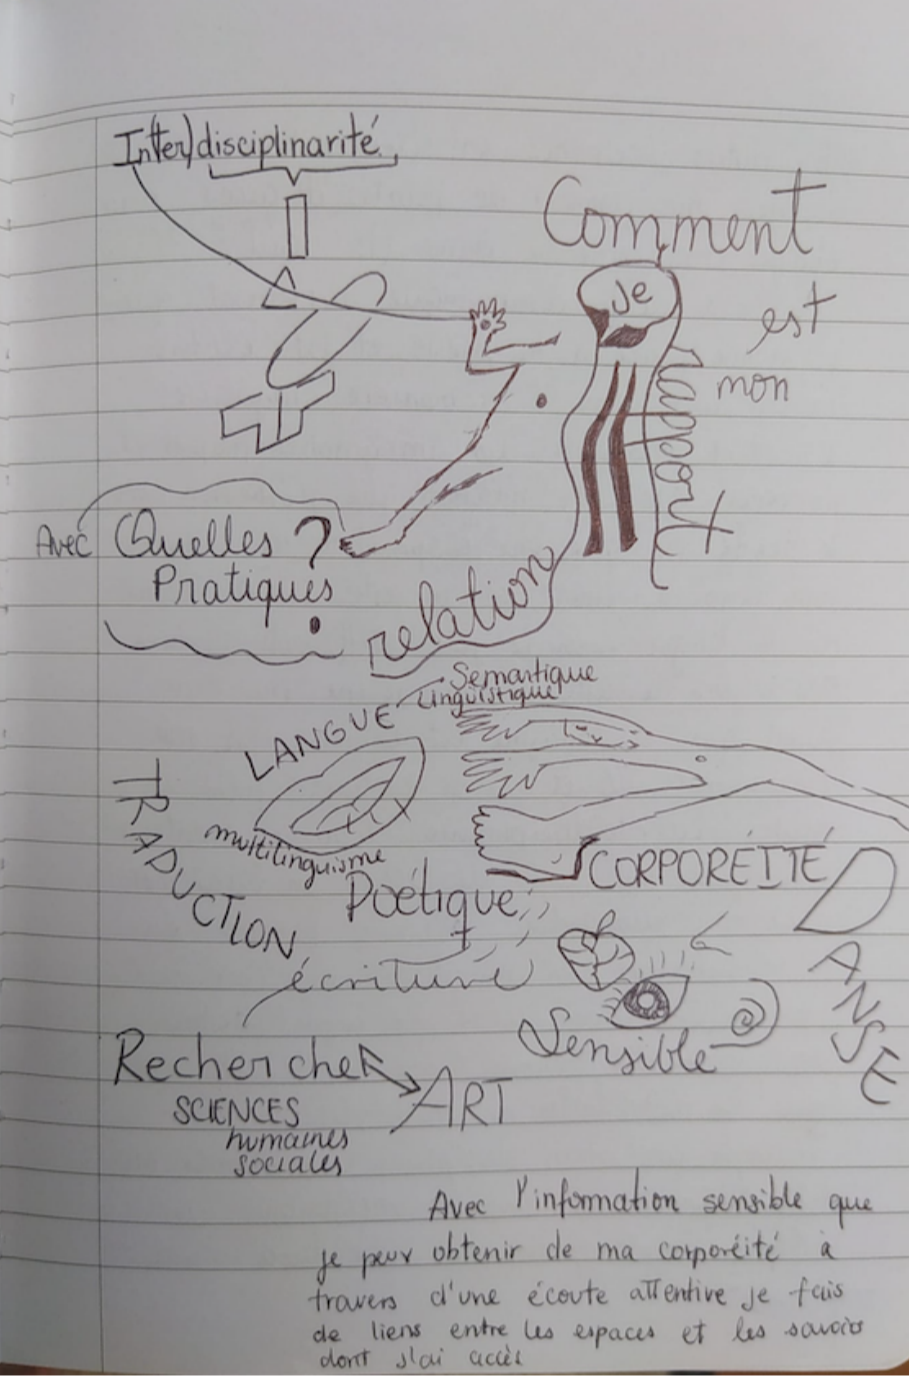 In(ter)disciplinarité
Comment
je
est
mon
rapport
Avec Quelles ?
Pratiques
relation
Semantique
Linguistique
LANGUE
TRADUCTION
multilinguisme
Poétique
CORPORÉITÉ
DANSE
écriture
Sensible
Recherche
ART
SCIENCES
humaines
sociales
Avec l'information sensible que
je peux obtenir de ma corporéité à
travers d'une écoute attentive je fais
de liens entre les espaces et les savoirs
dont j'ai accès